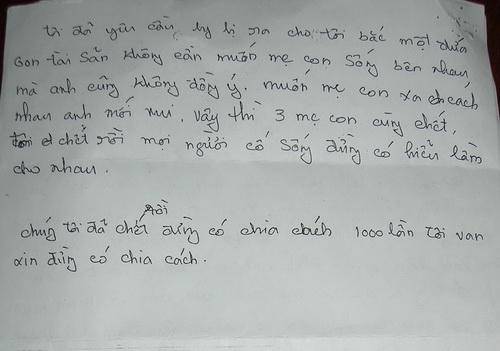 tôi đã yêu cầu ly hị ra cho tôi bắc một đứa
con tài sản không cần muốn mẹ con sống bên nhau
mà anh cũng không đồng ý. muốn mẹ con xa cách
nhau anh mới vui. vậy thì 3 mẹ con cùng chết,
chết rồi mọi người cố sống đừng có hiểu lầm
cho nhau.
chúng tôi đã chết rồi đừng có chia cách 1000 lần tôi van
xin đừng có chia cách.